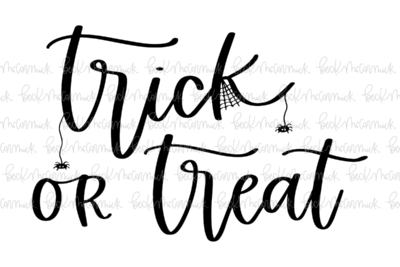 trick
OR treat